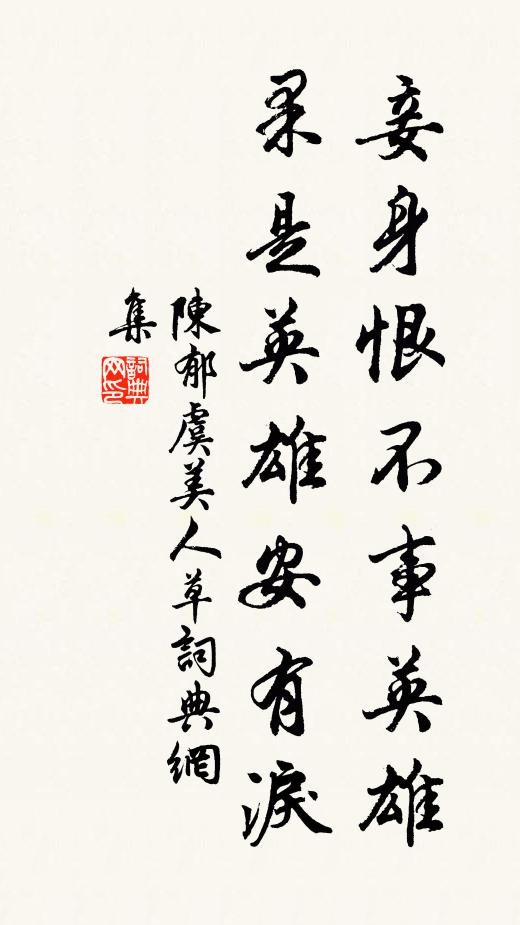 妾身恨不事英雄
果是英雄安有淚
陳郁虞美人草詞典網
集
詞典网印